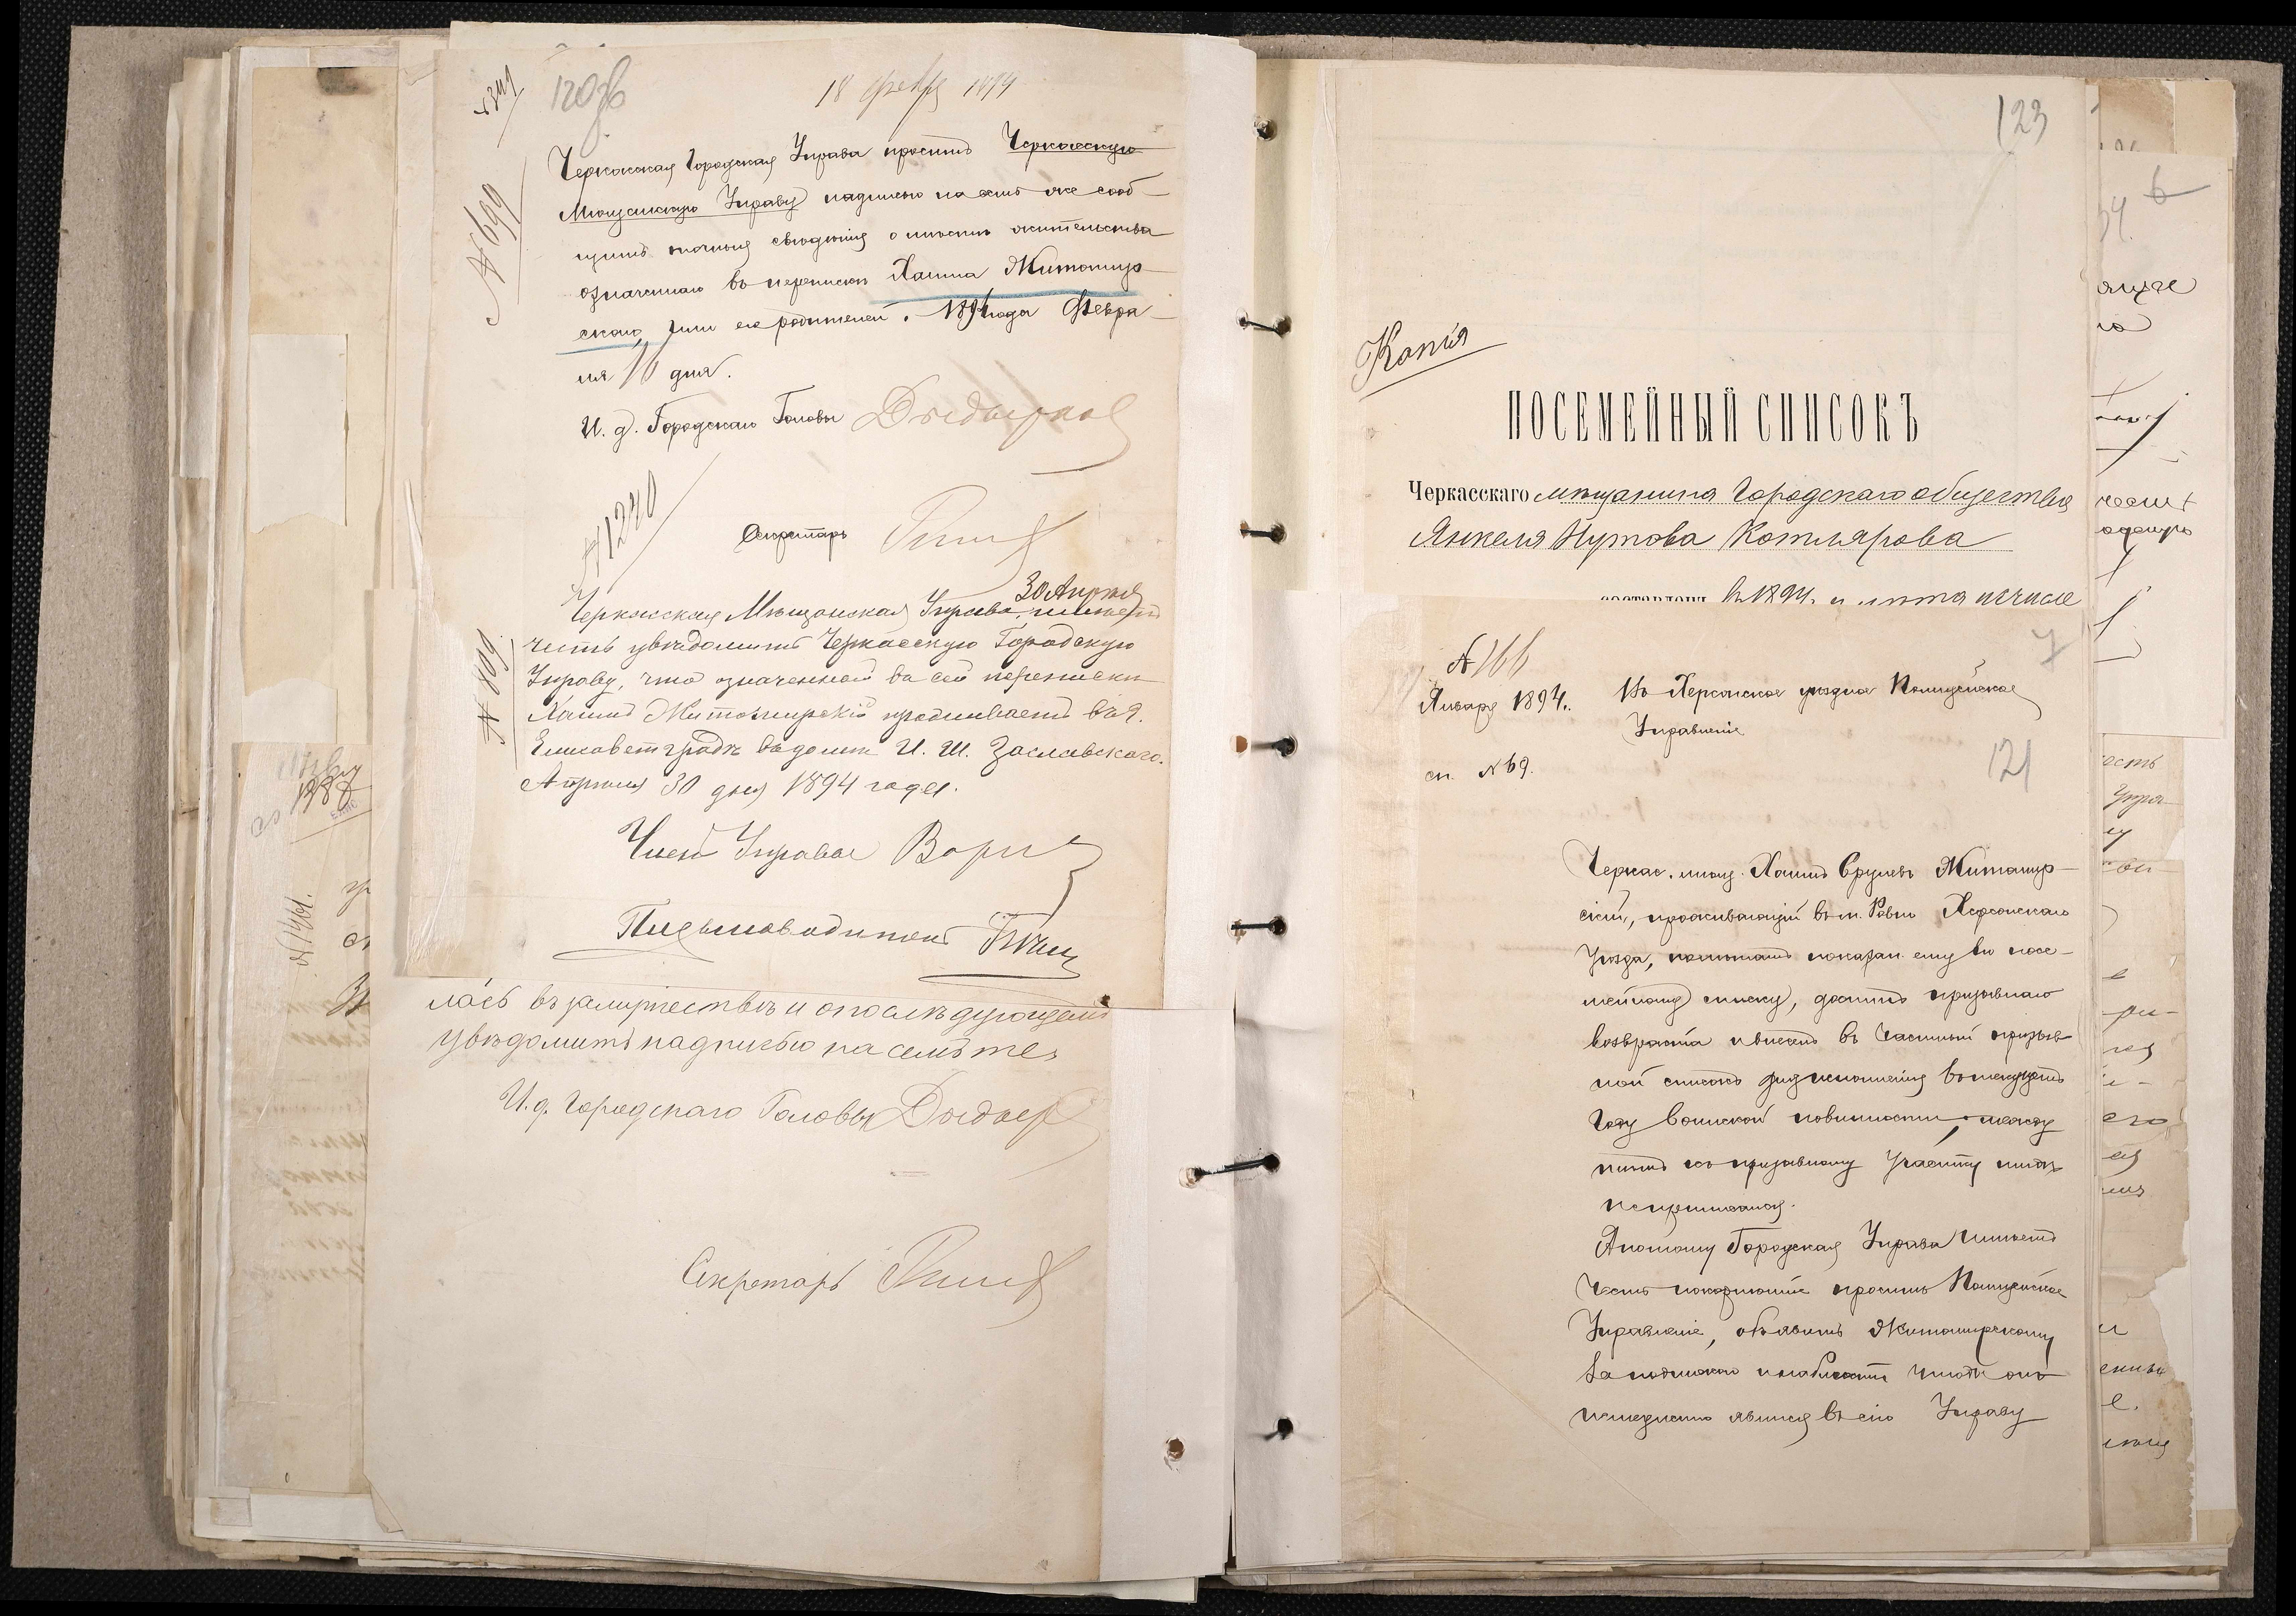 120об
18 февр 1894
№ 699
Черкасская Городская Управа проситъ Черкасскую
Мѣщанскую Управу надписью на семъ же сооб-
щить точныя свѣдѣнія о мѣстѣ жительства
означеннаго въ перепискѣ Хаима Житомир-
скаго, или его родителей. 1894 года Февра-
ля 18 дня.
И. д. Городскаго Головы
№ 1240
Секретарь
30 Апрѣля
Черкасская Мѣщанская Управа, имѣетъ
№ 809
честь увѣдомить Черкасскую Городскую
Управу, что означенный въ сей переписки
Хаимъ Житомирскій проживаетъ въ г.
Елисаветградѣ въ домѣ И. Ш. Заславскаго.
Апрѣля 30 дня 1894 года.
Членъ Управы
Письмоводитель
лась въ замужествѣ и о послѣдующемъ
увѣдомить надписью на семъ же.
И. д. Городскаго Головы
Секретарь
1388
№ 1461.
123
Копія
ПОСЕМЕЙНЫЙ СПИСОКЪ
Черкасскаго мѣщанина Городскаго общества
Янкеля Нутова Котлярова
составленъ въ 1894 г. и лѣта исчисле
№ 166
Января 1894 г.
Въ Херсонское уѣздное Полицейское
Управленіе
сп. № 69.
121
Черкас. мѣщ. Хаимъ Срулевъ Житомир-
скій, проживающій въ м. Ровно Херсонскаго
уѣзда, по лѣтамъ показан. ему въ посе-
мейномъ списку, достигъ призывнаго
возраста и внесенъ въ частный призыв-
ной списокъ для исполненія въ текущемъ
году воинской повинности, между
тѣмъ къ призывному участку нигдѣ
не приписался.
А потому Городская Управа имѣетъ
честь покорнѣйше просить Полицейское
Управленіе, объявить Житомирскому
съ подпискою чтобы онъ
немедленно явился въ сію Управу